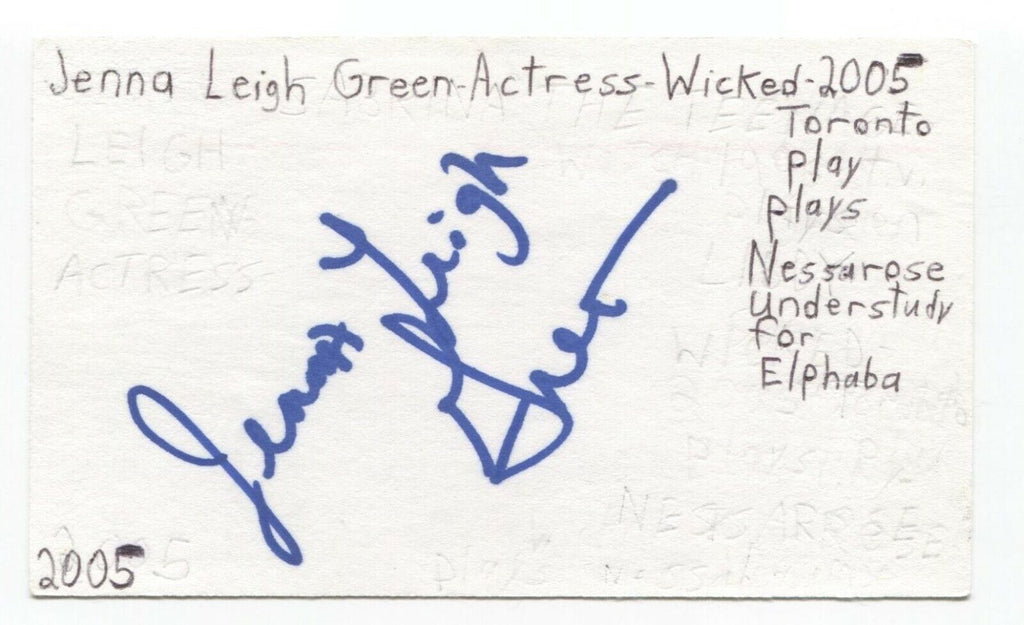 Jenna Leigh Green-Actress-Wicked-2005
Toronto
play
plays
Nessarose
understudy
for
Elphaba
Jenna Leigh Green
LEIGH
GREEN
ACTRESS
NESSAROSE
2005